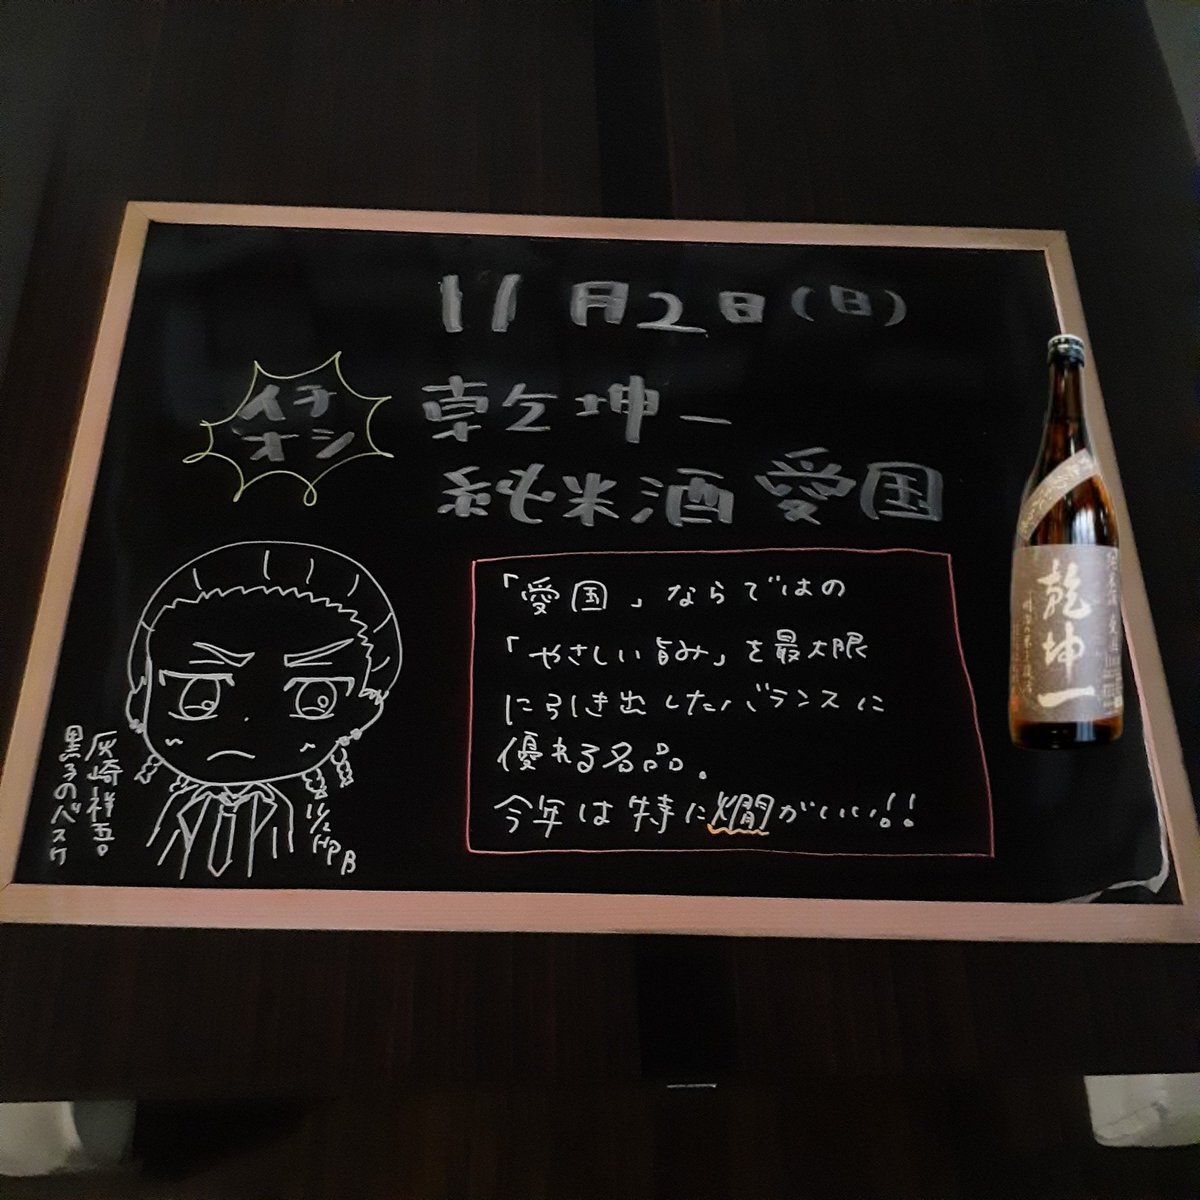 11月2日(日)
イチ
オシ
乾坤一
純米酒 愛国
「愛国」ならではの
「やさしい旨み」を最大限
に引き出したバランスに
優れる名品。
今年は特に燗がいい!!
灰崎祥吾。
黒子のバスケ
11/2 HPB
乾坤一
純米酒 愛国